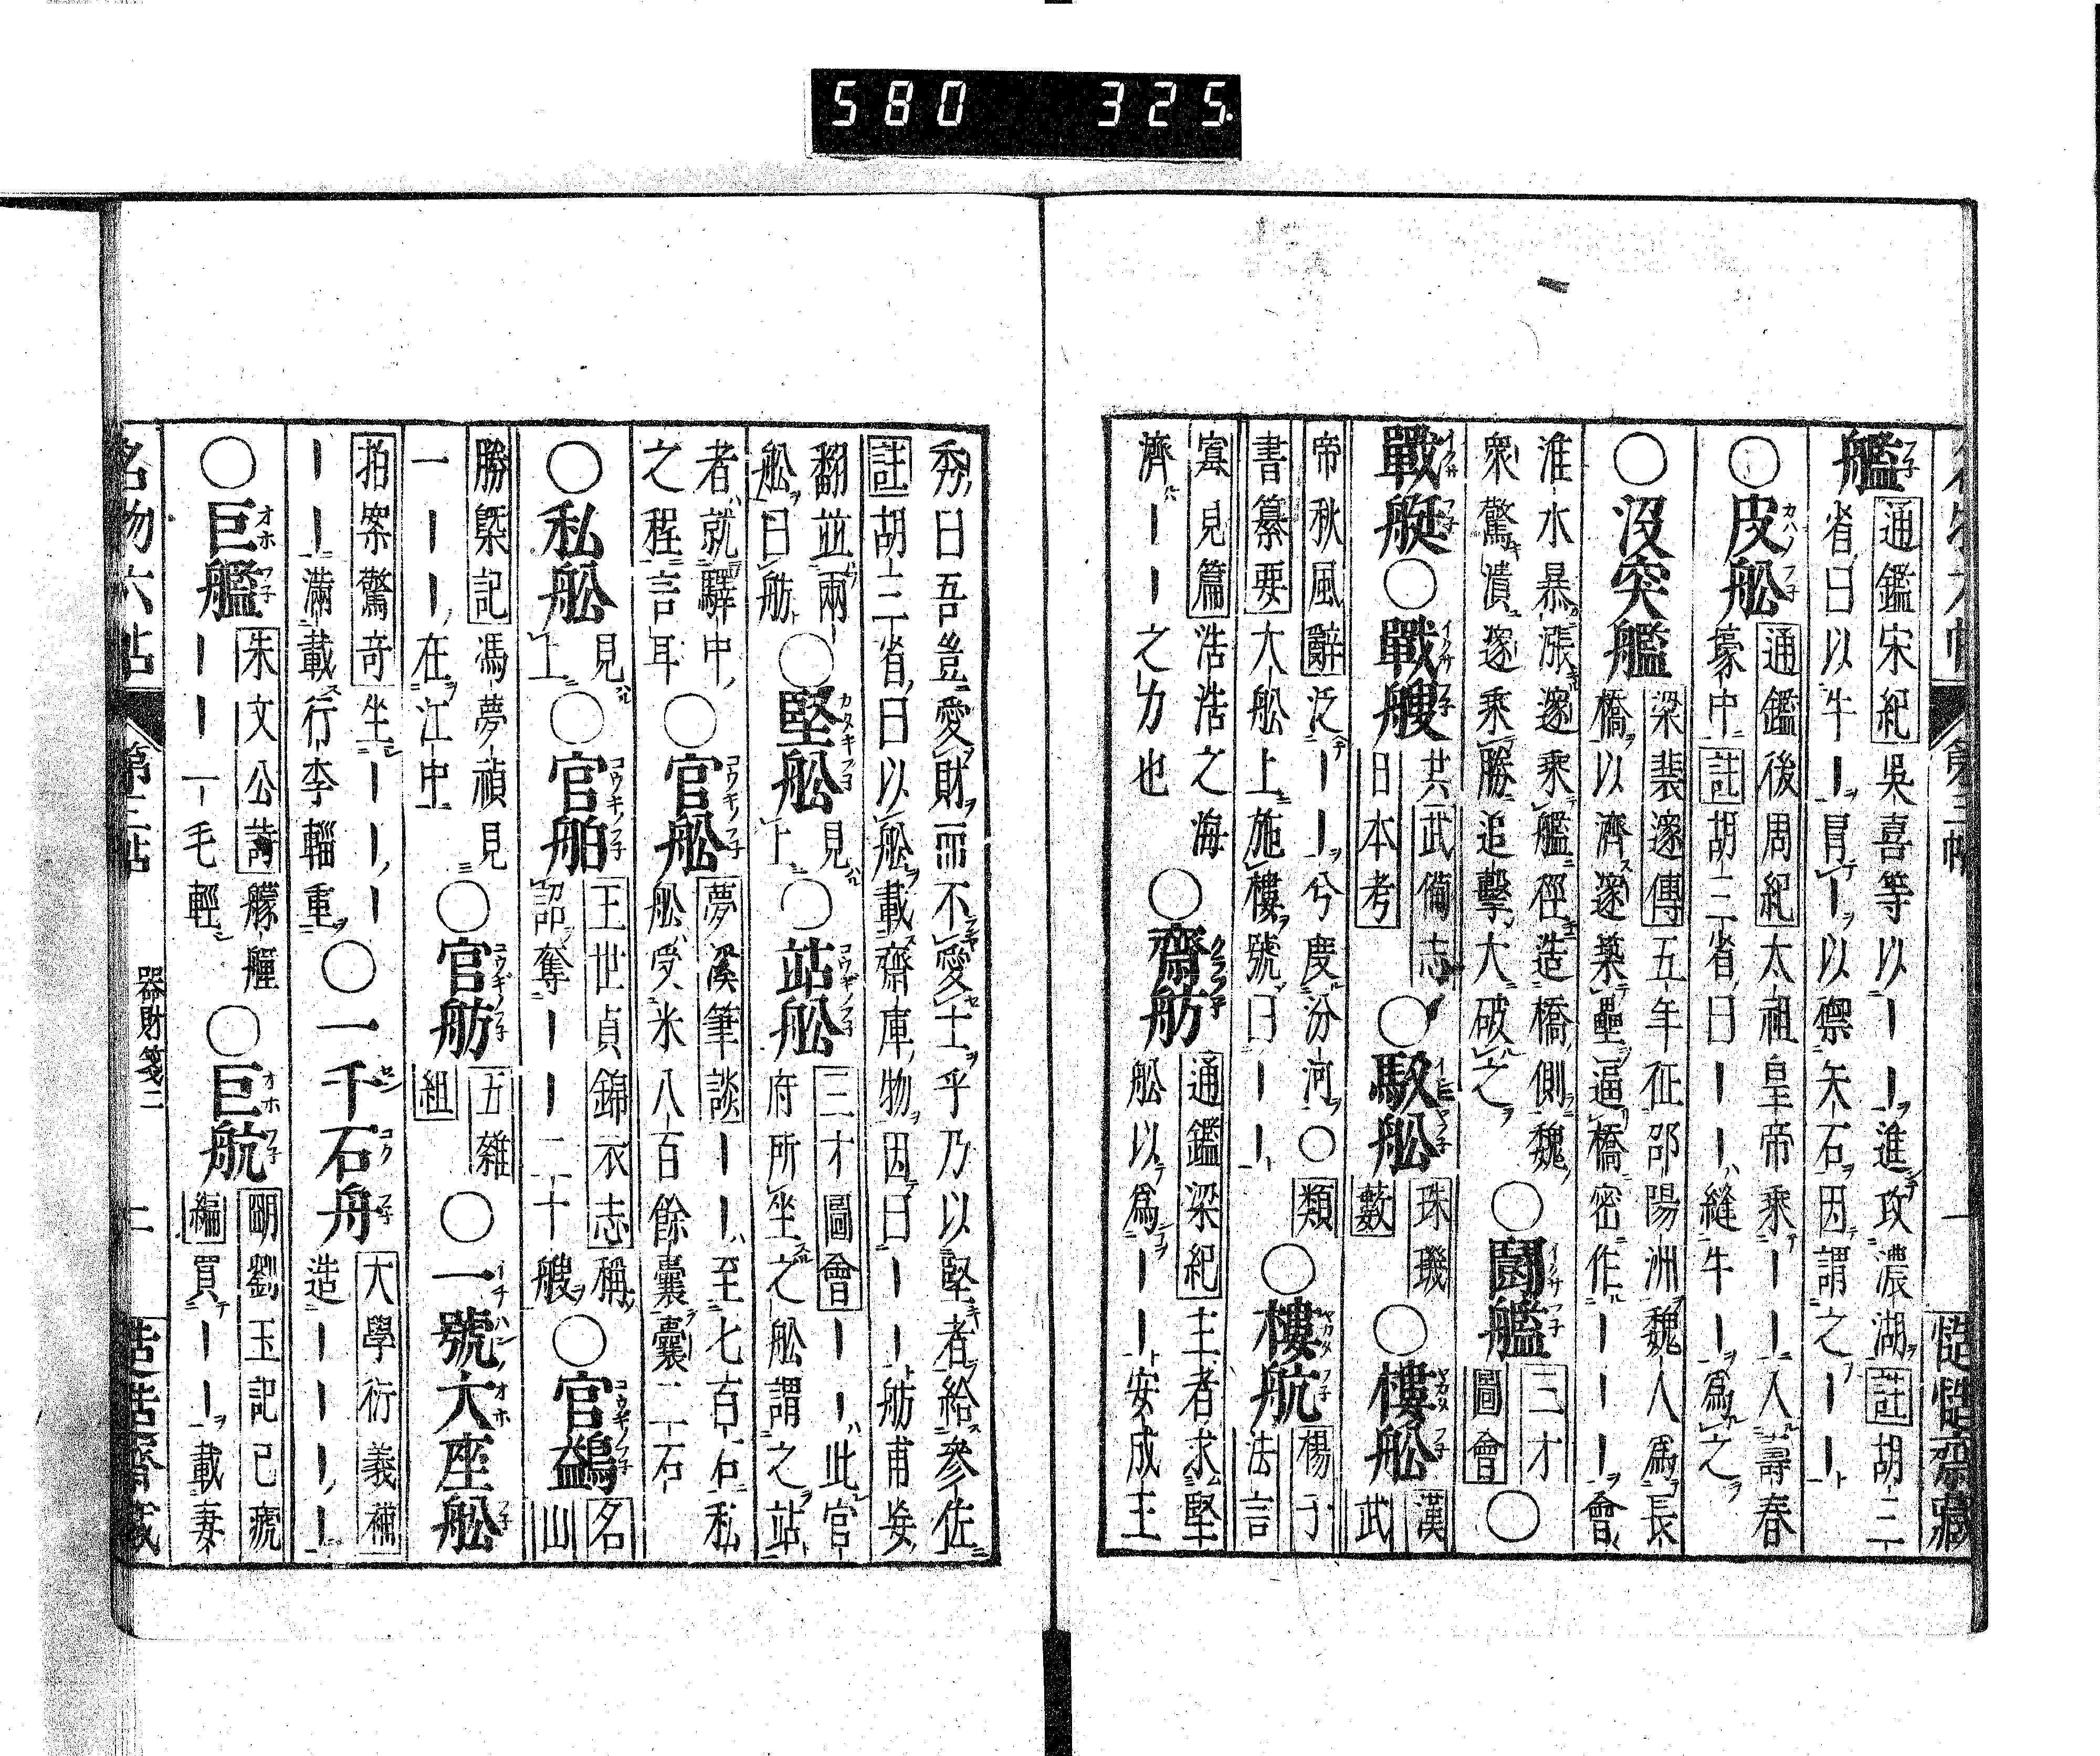 580 325
艦 通鑑宋紀吳喜等以｜｜進攻濃湖註胡三
省曰以牛｜冒｜以禦矢石因謂之｜｜
○皮舩 通鑑後周紀太祖皇帝乘｜｜入壽春
壕中註胡三省曰｜｜縫牛｜爲之
○沒突艦 梁裴邃傳五年征邵陽洲魏人爲長
橋以濟邃築壘逼橋密作｜｜｜會
淮水暴漲邃乘艦徑造橋側魏
衆驚潰邃乘勝追擊大破之
○鬪艦 三才
圖會
○
戰艇○戰艘 共武備志
日本考
○馭舩 珠璣
藪
○樓舩 漢
武
帝秋風辭泛｜｜兮度汾河○類
書纂要大舩上施樓號曰｜｜
○樓航 楊子
法言
寡見篇浩浩之海
濟｜｜之力也
○齋舫 通鑑梁紀王者求堅
舩以爲｜｜安成王
慥慥齋藏
秀曰吾豈愛財而不愛士乎乃以堅者給參佐
註胡三省曰以舩載齋庫物因曰｜｜舫甫妄
翻並兩
舩曰舫
○堅舩 見
上
○站舩 三才圖會｜｜此官
府所坐之舩謂之站
者就驛中
之程言耳
○官舩 夢溪筆談｜｜至七百石私
舩受米八百餘囊囊二石
○私舩 見
上
○官舶 王世貞錦衣志稱
詔奪｜｜二十艘
○官鷁 名
山
勝槩記馮夢禎見
一｜｜在江中
○官舫 五雜
組
○一號大座舩
拍案驚奇坐｜｜｜
｜｜滿載行李輜重
○一千石舟 大學衍義補
造｜｜｜｜
○巨艦 朱文公詩艨艟
｜｜一毛輕
○巨航 明劉玉記已瘧
編買｜｜載妻
名物六帖 第三帖 器財箋二 二